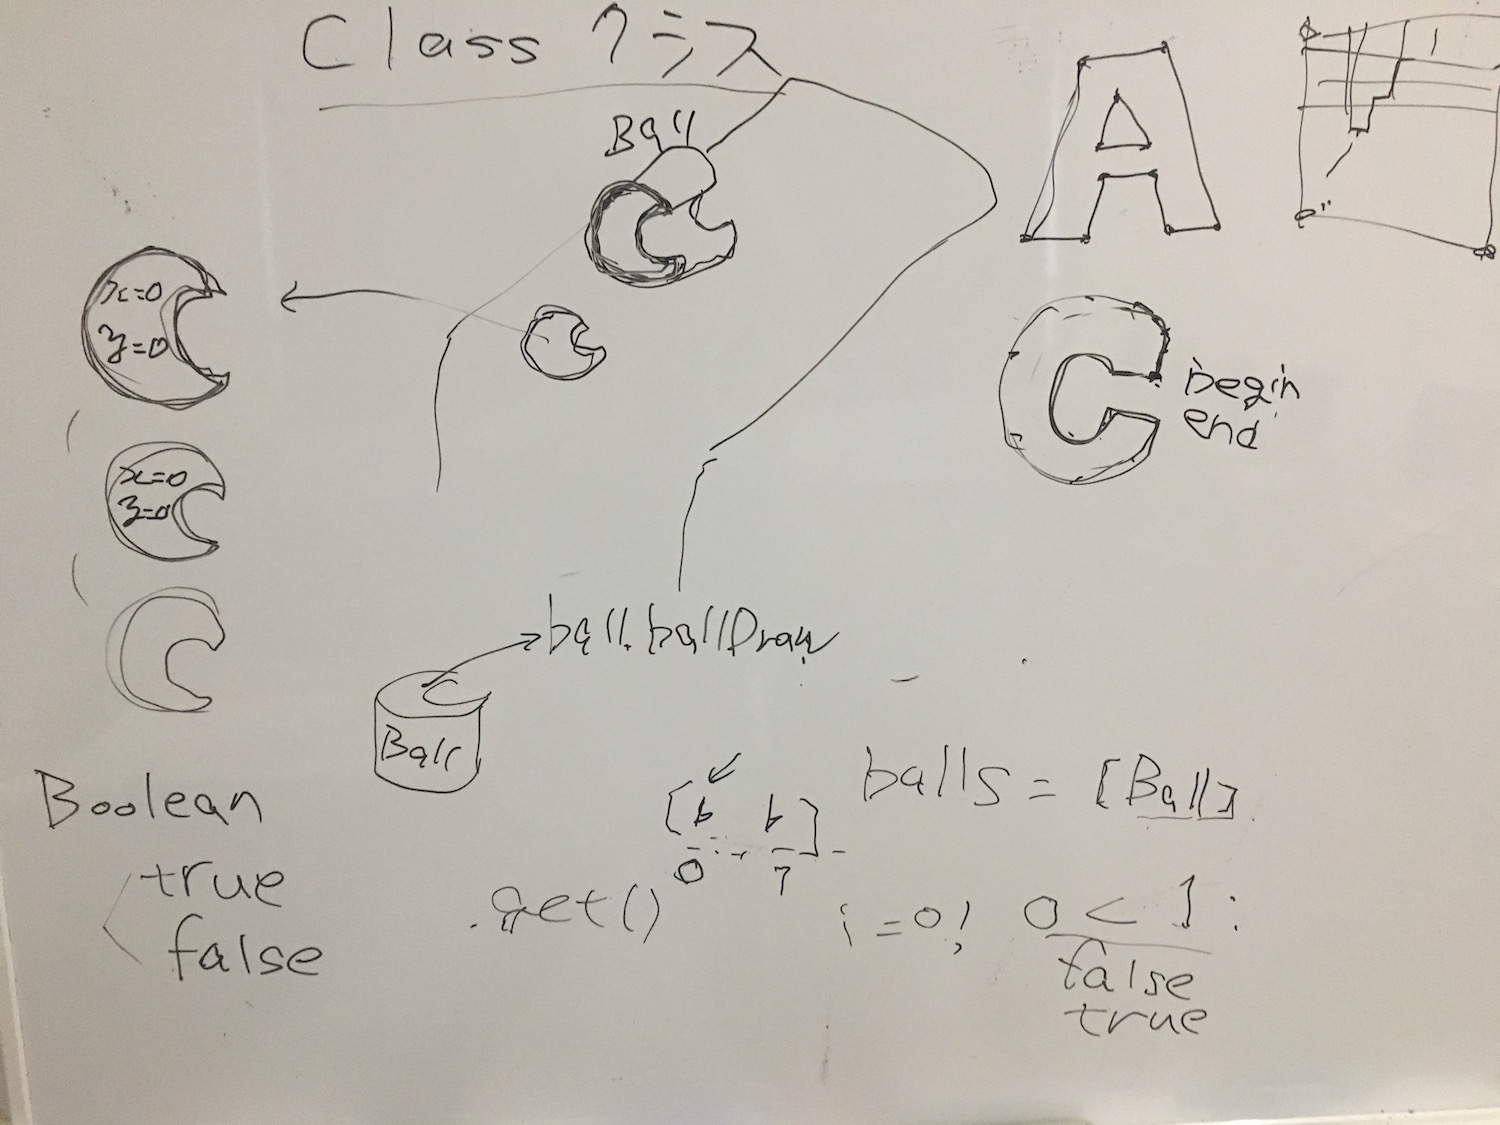 Class クラス
Ball
x=0
y=0
begin
end
x=0
y=0
ball.ballDraw
Ball
Boolean
true
false
[b b]
0 7
balls = [Ball]
.get()
i=0; 0<1;
false
true
A
C